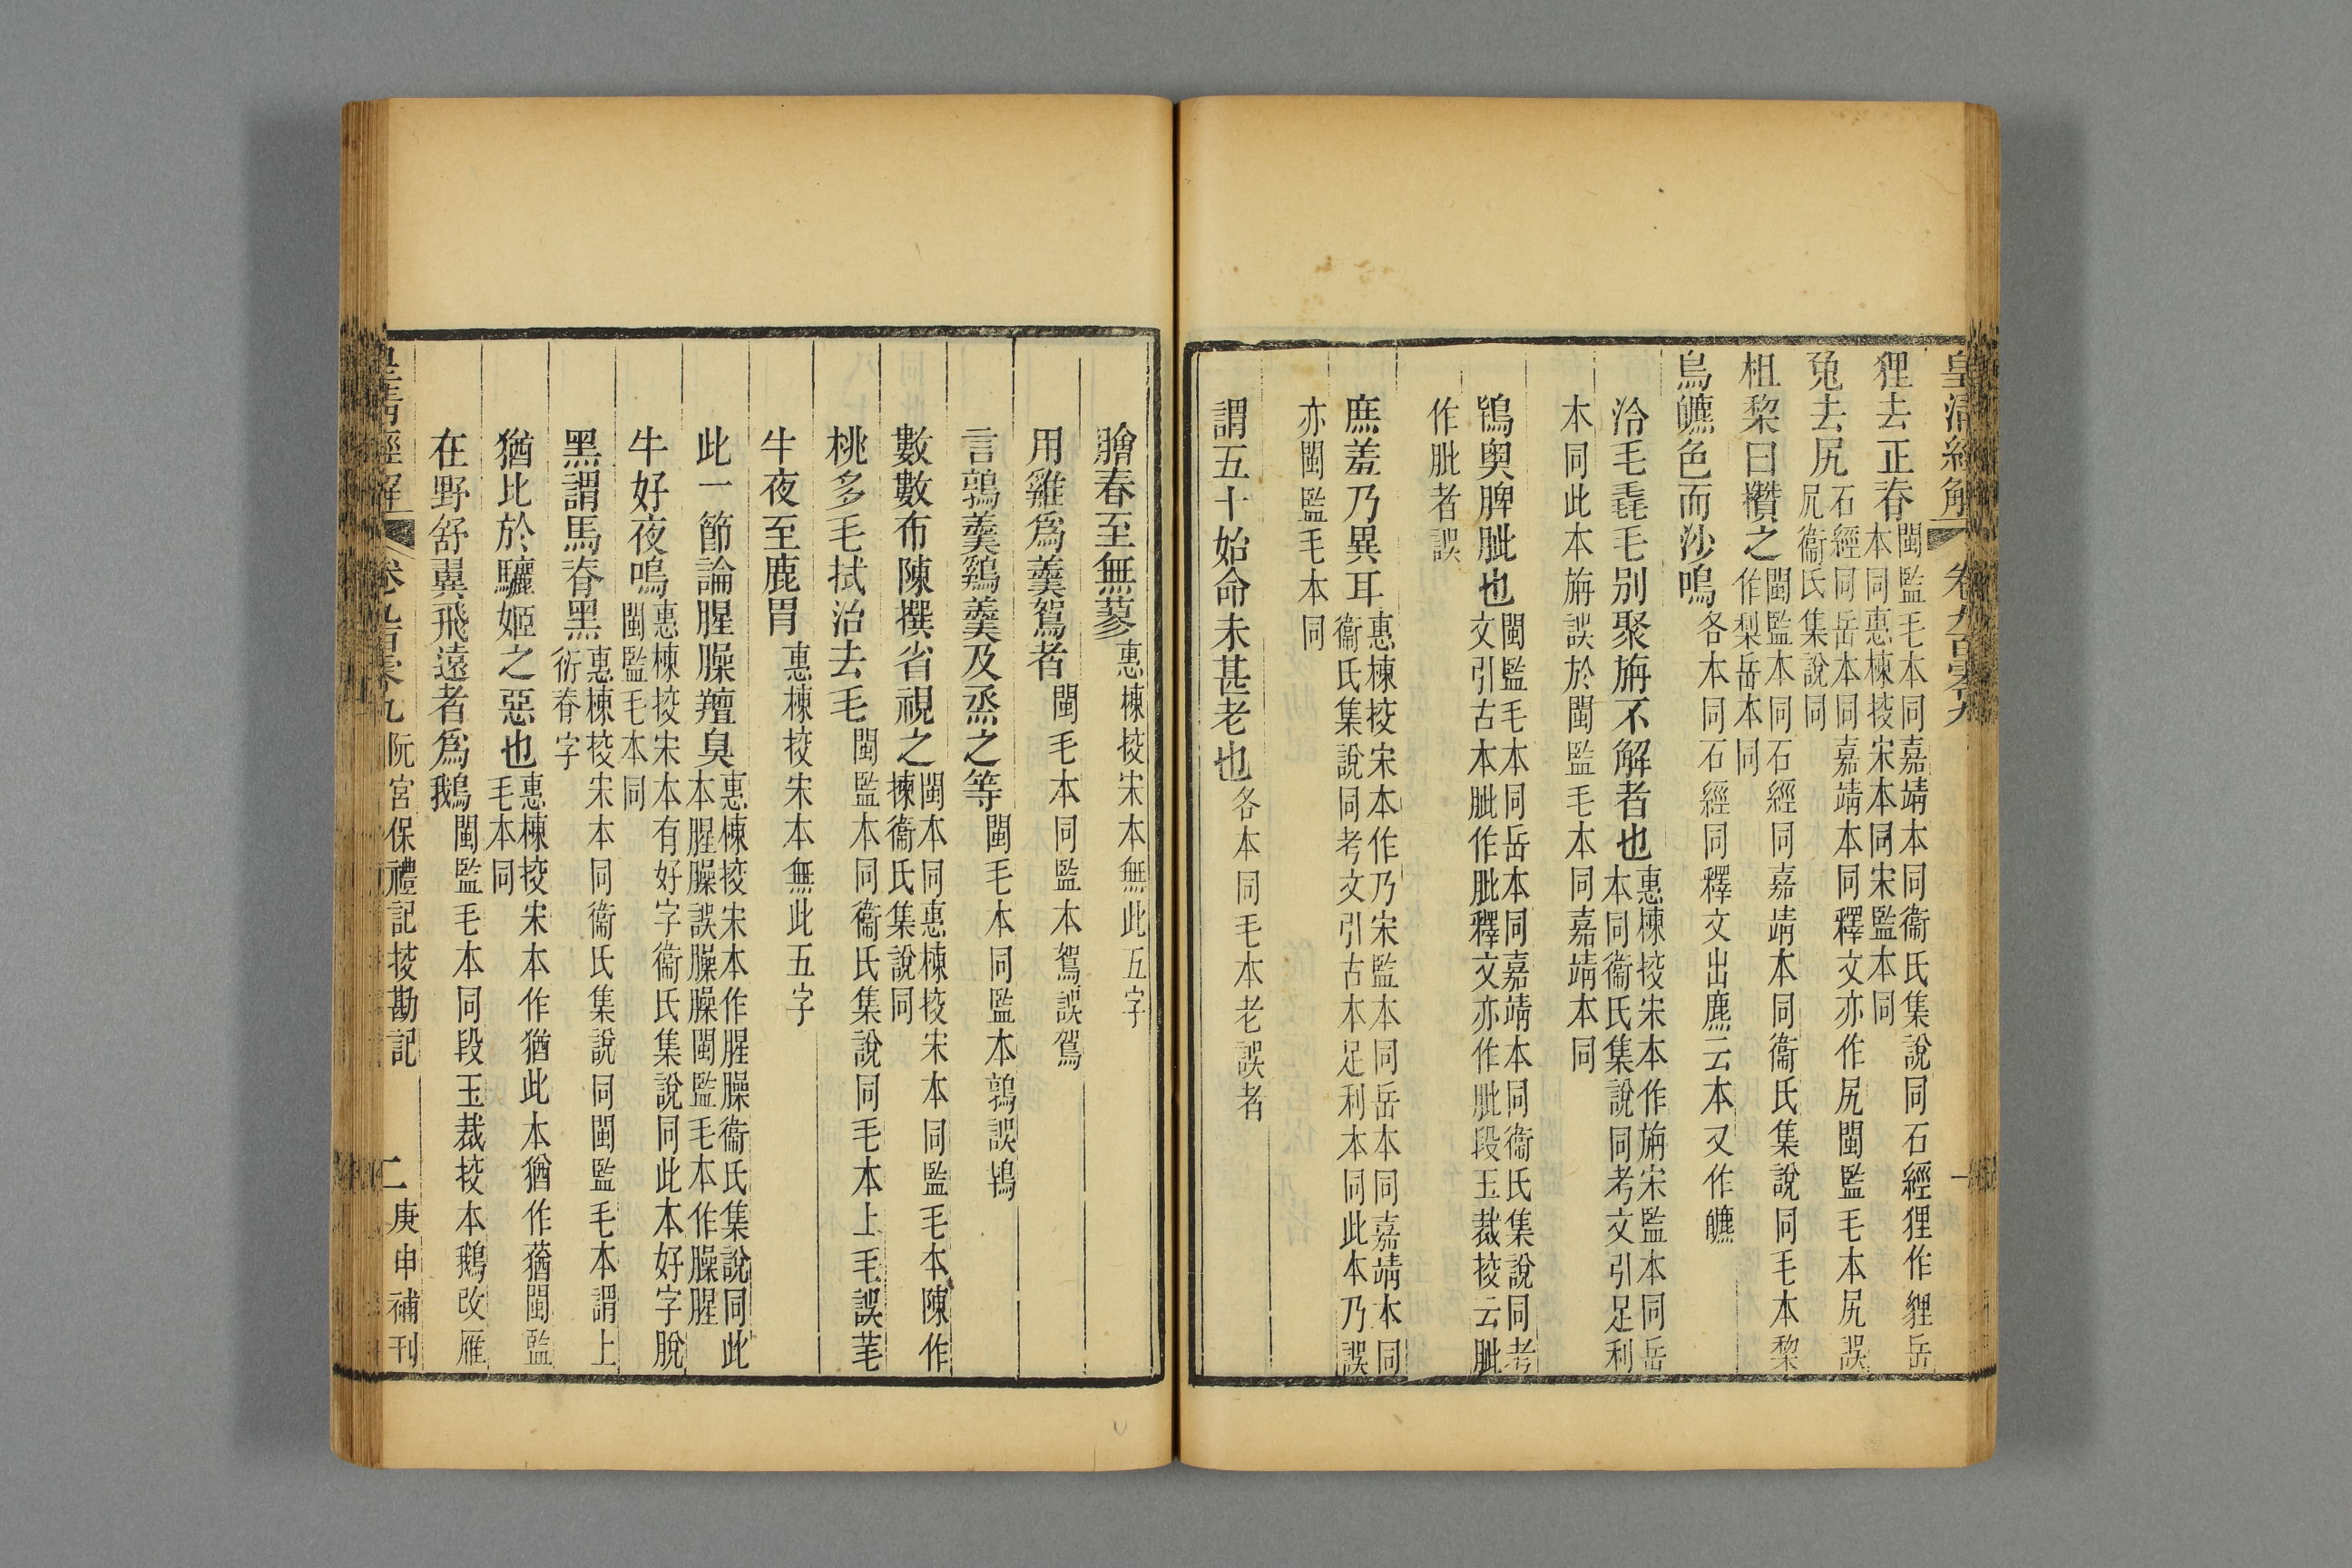 皇清經解 卷九百零九
狸去正脊閩監毛本同嘉靖本同衞氏集說同石經狸作貍岳本同惠棟挍宋本同宋監本同
兔去尻石經同岳本同嘉靖本同釋文亦作尻閩監毛本尻誤尻衞氏集說同
柤棃曰攢之閩監本同石經同嘉靖本同衞氏集說同毛本棃作梨岳本同
鳥皫色而沙鳴各本同石經同釋文出麃云本又作皫
泠毛毳毛別聚旃不解者也惠棟挍宋本作旃宋監本同岳本同衞氏集說同考文引足利
本同此本旃誤於閩監毛本同嘉靖本同
鴇奧脾肶也閩監毛本同岳本同嘉靖本同衞氏集說同考文引古本肶作肶釋文亦作肶段玉裁挍云肶
作肶者誤
庶羞乃異耳惠棟挍宋本作乃宋監本同岳本同嘉靖本同衞氏集說同考文引古本足利本同此本乃誤
亦閩監毛本同
謂五十始命未甚老也各本同毛本老誤者
膾春至無蓼惠棟挍宋本無此五字
用雞爲羹鴽者閩毛本同監本鴽誤鴽
言鶉羹鷄羹及烝之等閩毛本同監本鶉誤鴇
數數布陳撰省視之閩本同惠棟挍宋本同監毛本陳作揀衞氏集說同
桃多毛拭治去毛閩監本同衞氏集說同毛本上毛誤芼
牛夜至鹿胃惠棟挍宋本無此五字
此一節論腥臊羶臭惠棟挍宋本作腥臊衞氏集說同此本腥臊誤臊臊閩監毛本作臊腥
牛好夜鳴惠棟挍宋本有好字衞氏集說同此本好字脫閩監毛本同
黑謂馬脊黑惠棟挍宋本同衞氏集說同閩監毛本謂上衍脊字
猶比於驪姬之惡也惠棟挍宋本作猶此本猶作蕕閩監毛本同
在野舒翼飛遠者爲鵝閩監毛本同段玉裁挍本鵝改雁
皇清經解 卷九百零九 阮宮保禮記挍勘記 二 庚申補刊